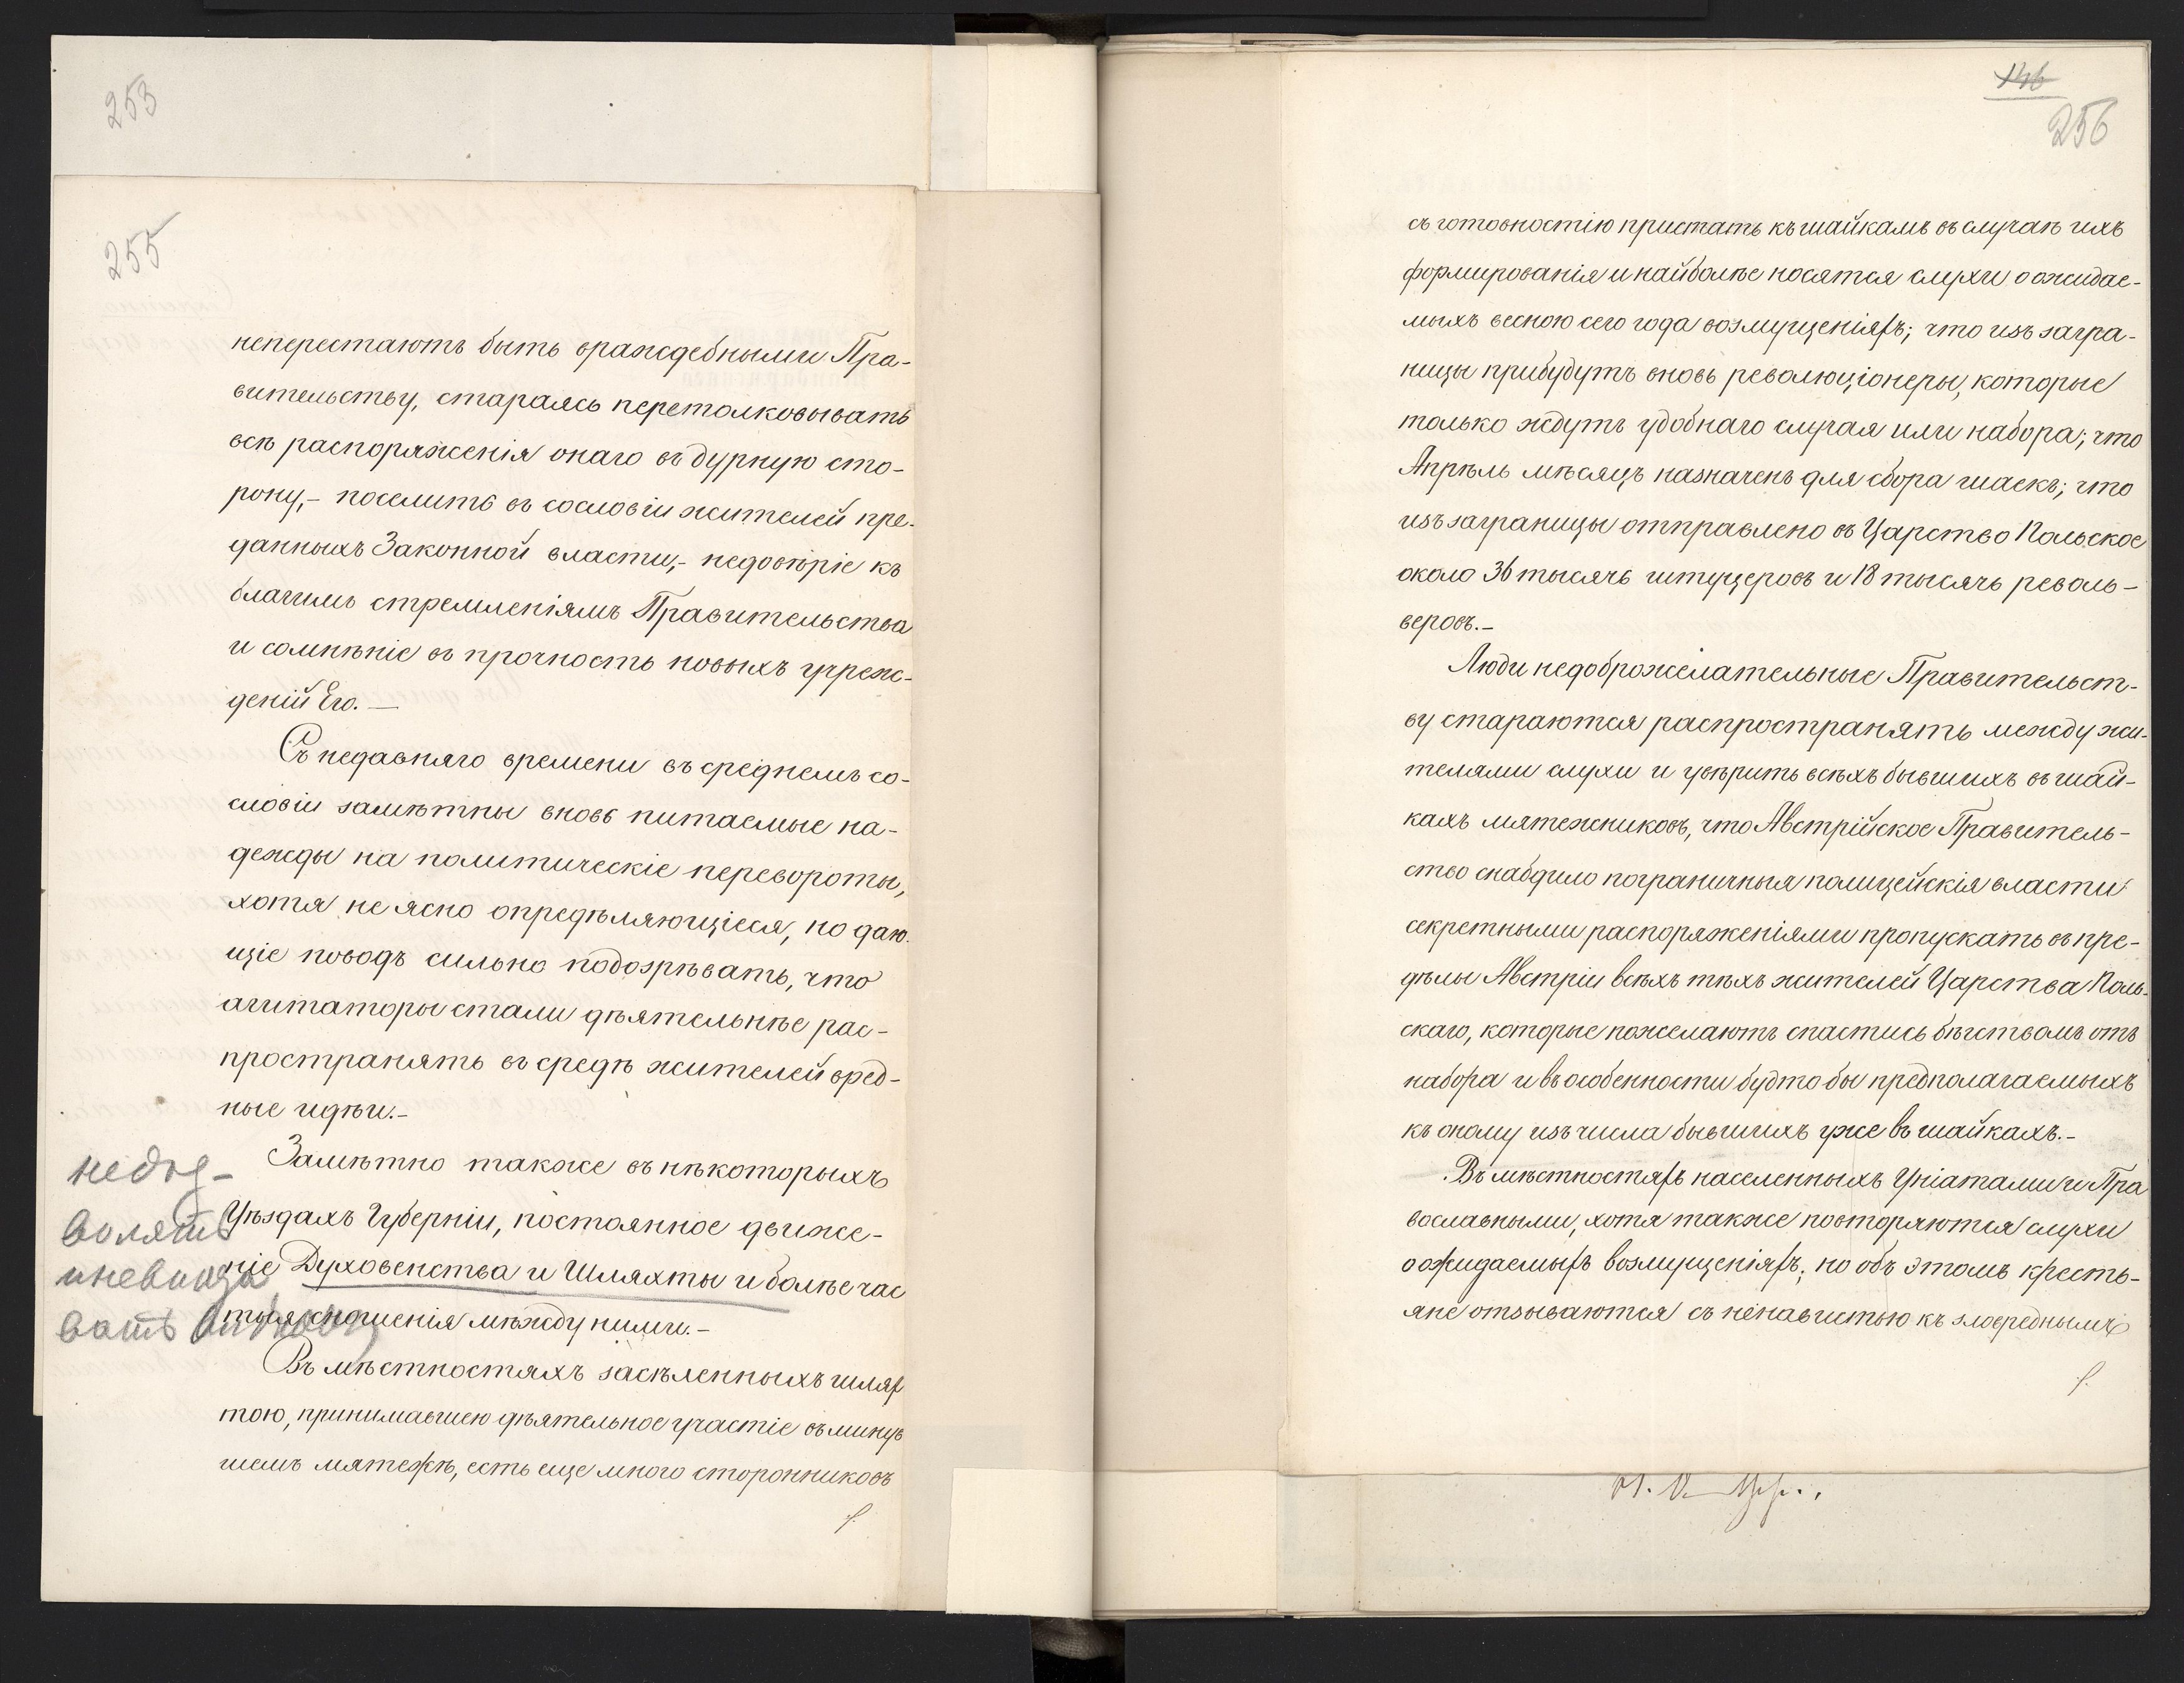 253
255
неперестаютъ быть враждебными Пра-
вительству, стараясь перетолковывать
всѣ распоряженія онаго въ дурную сто-
рону,- поселить въ сословіи жителей пре-
данныхъ Законной власти,- недовѣріе къ
благимъ стремленіямъ Правительства
и сомнѣніе въ прочность новыхъ учреж-
деній Его.—
Съ недавняго времени въ среднемъ со-
словіи замѣтны вновь питаемые на-
дежды на политическіе перевороты,
хотя не ясно опредѣляющіеся, но даю-
щіе поводъ сильно подозрѣвать, что
агитаторы стали дѣятельнѣе рас-
пространять въ средѣ жителей вред-
ные идѣи.-
Замѣтно также въ нѣкоторыхъ
Уѣздахъ Губерніи, постоянное движе-
ніе Духовенства и Шляхты и болѣе час
тыя сношенія мѣжду ними.-
Въ мѣстностяхъ засѣленныхъ шлях
тою, принимавшею дѣятельное участіе въ минув
шемъ мятежѣ, есть еще много сторонниковъ
волять
вать
146
256
съ готовностію пристать къ шайкамъ въ случаѣ ихъ
формированія и найболѣе носятся слухи о ожидае-
мыхъ весною сего года возмущеніяхъ; что изъ загра-
ницы прибудутъ вновь революціонеры, которые
только ждутъ удобнаго случая или набора; что
Апрѣль мѣсяцъ назначенъ для сбора шаекъ; что
изъ заграницы отправлено въ Царство Польское
около 36 тысячъ штуцеровъ и 18 тысячъ револь-
веровъ.-
Люди недоброжелательные Правительст-
ву стараются распространять между жи-
телями слухи и увѣрить всѣхъ бывшихъ въ шай-
кахъ мятежниковъ, что Австрійское Правитель-
ство снабдило пограничныя полицейскія власти
секретными распоряженіями пропускать въ пре-
дѣлы Австріи всѣхъ тѣхъ жителей Царства Поль-
скаго, которые пожелаютъ спастись бѣгствомъ отъ
набора и въ особенности будто бы предполагаемыхъ
къ оному изъ числа бывшихъ уже въ шайкахъ.-
Въ мѣстностяхъ населенныхъ Уніатами и Пра
вославными, хотя также повторяются слухи
о ожидаемыхъ возмущеніяхъ; но объ этомъ кресть-
яне отзываются съ ненавистью къ зловреднымъ